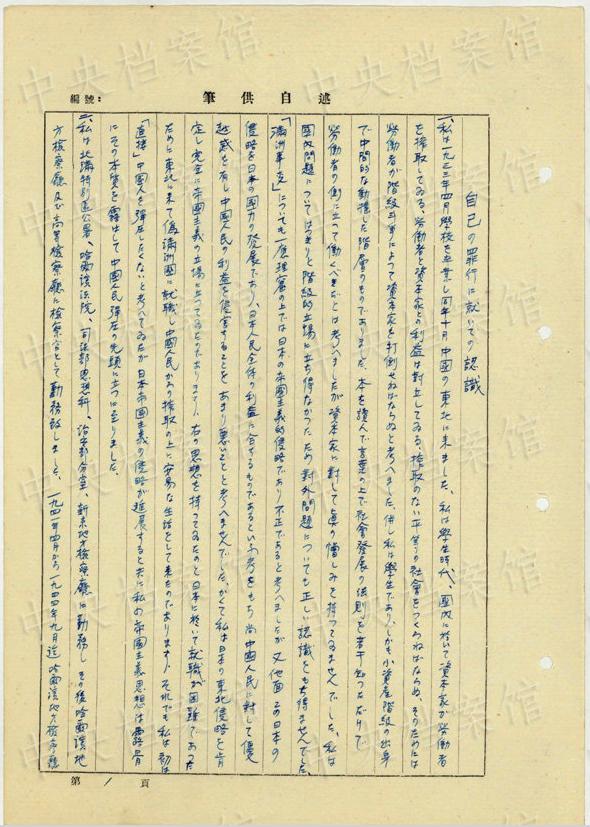 編號:
述自供筆
自己の罪行に就いての認識
一、私は一九三三年四月學校を卒業し同年十月中國の東北に来ました。私は學生時代、國内に於いて資本家が勞働者
を搾取してゐる、勞働者と資本家との利益は對立してゐる、搾取のない平等の社會をつくらねばならぬ、そのためには
勞働者が階級斗争によつて資本家を打倒せねばならぬと考へました。併し私は學生であり、しかも小資産階級の出身
で中間的な動揺した階層のものでありました。本を讀んで言葉の上で社會發展の法則を若干知つただけで
勞働者の側に立つて働くべきだとは考へましたが資本家に對して真の憎しみを持つてゐませんでした。私は
國内問題についてはつきりと階級的立場に立ち得なかつたため對外問題についても正しい認識をもち得ませんでした。
「満洲事変」についても一應理窟の上では日本の帝國主義的侵略であり不正であると考へましたが又他面この日本の
侵略を日本の國力の發展であり、日本人民全体の利益に合するものであるといふ考をもち尚中國人民に對して優
越感を有し中國人民の利益を侵害することをあまり悪いことと考へませんでした。かくて私は日本の東北侵略を肯
定し完全に帝國主義の立場に立つてゐたのであります。右の思想を持つてゐたのと日本に於いて就職が困難であつた
ために東北に来て偽満洲國に就職し中國人民からの搾取の上に安易な生活をして来たのであります。それでも私は初は
「直接」中國人を彈圧したくないと考へてゐたが日本帝國主義の侵略が進展すると共に私の帝國主義思想は露骨
にその本質を露出して中國人民彈圧の先頭に立つに至りました。
二、私は北満特別區公署、哈爾濱法院、司法部思想科、治安部分室、新京地方檢察廳に勤務し その後哈爾濱地
方檢察廳及び高等檢察廳に檢察官として勤務致しました。一九四一年四月から一九四四年九月迄哈爾濱地方檢察廳
第 1 頁
中央档案馆